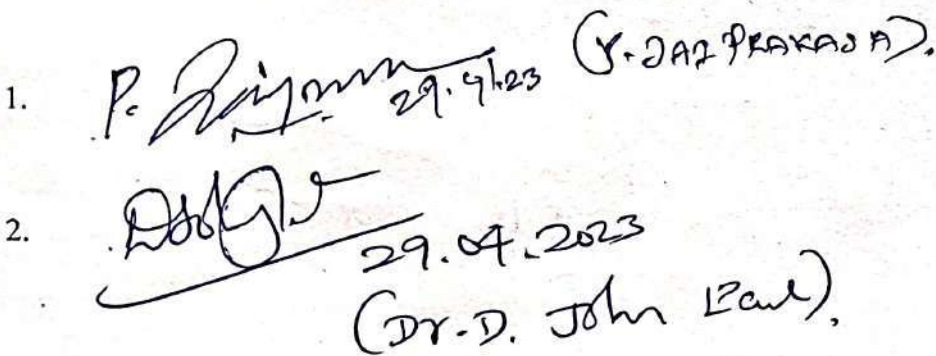 1. P. 29.4.23 (P. JAI PRAKASA).
2.
29.04.2023
(Dr. D. John Paul).